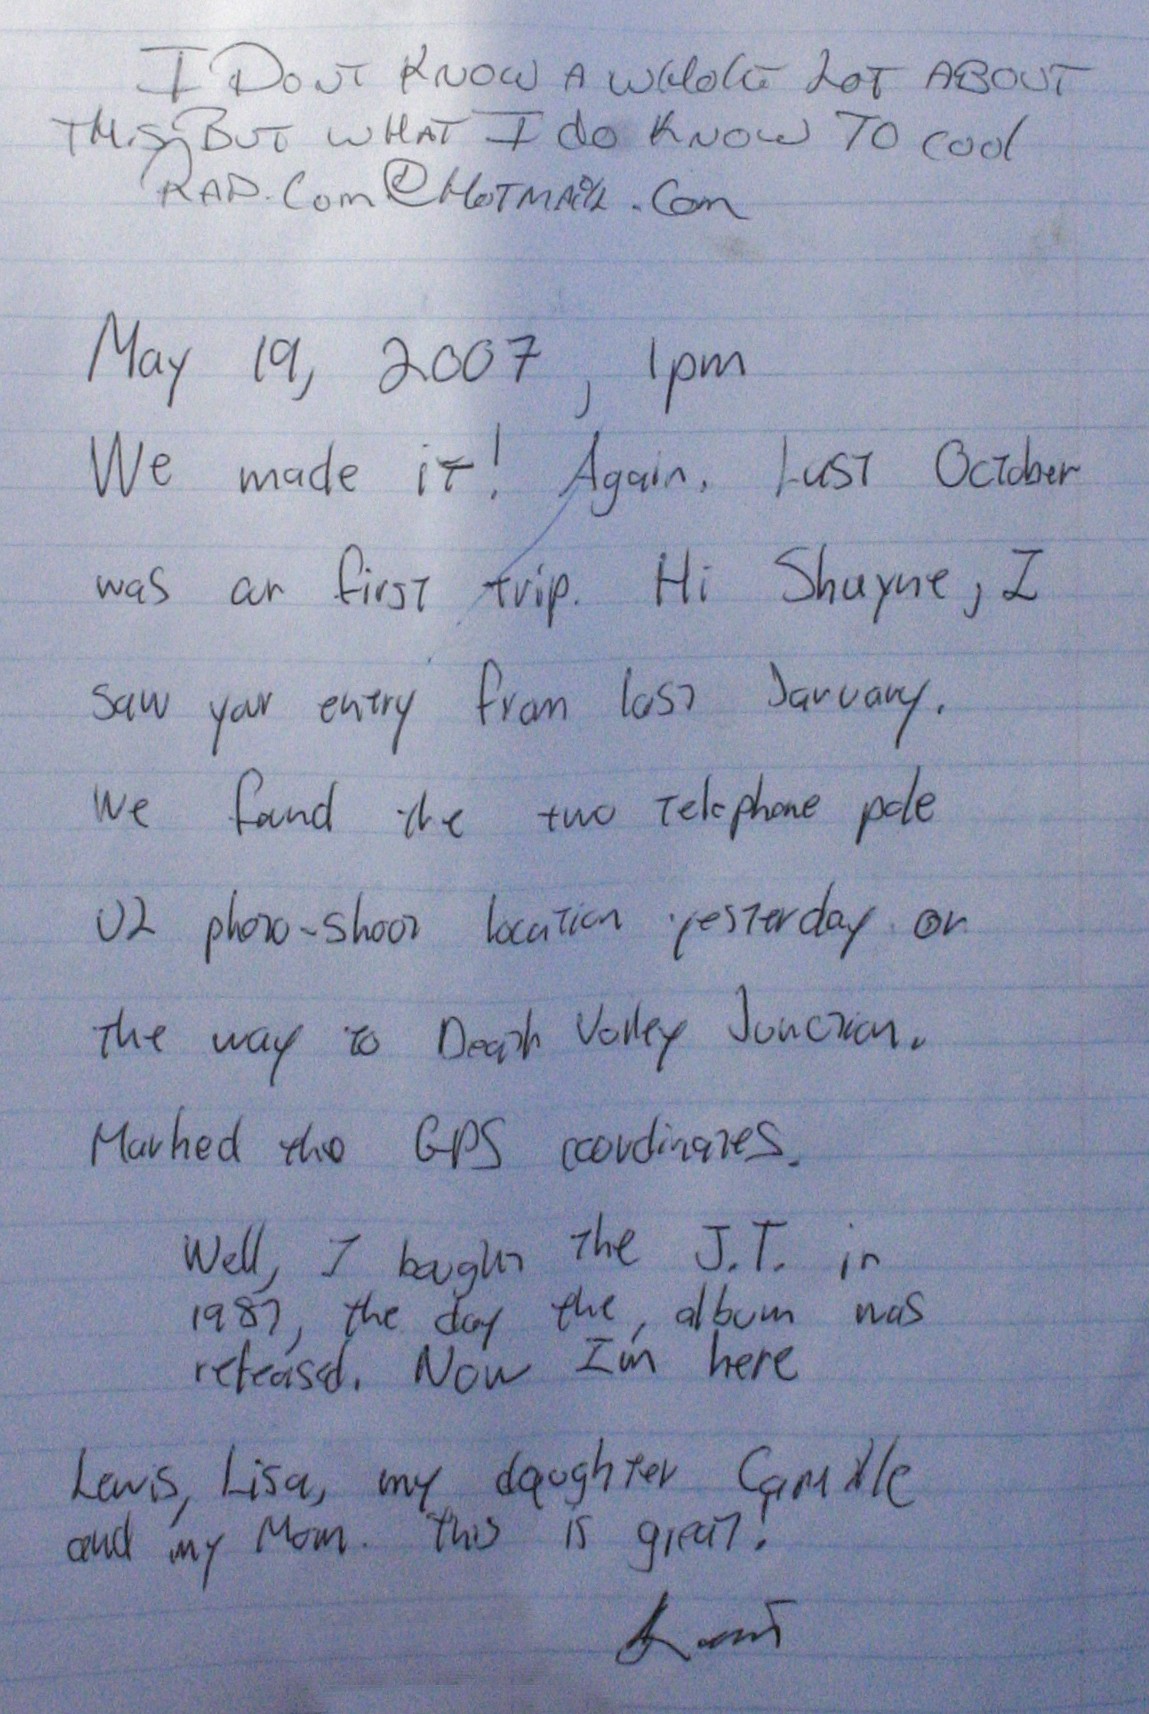 I DONT KNOW A WHOLE LOT ABOUT
THIS, BUT WHAT I do KNOW TO cool
RAD.Com@HOTMAIL.Com
May 19, 2007, 1pm
We made it! Again. Last October
was our first trip. Hi Shayne, I
saw your entry from last January.
We found the two telephone pole
U2 photo-shoot location yesterday on
the way to Death Valley Junction.
Marked the GPS coordinates.
Well, I bought the J.T. in
1987, the day the, album was
released. Now I'm here
Lewis, Lisa, my daughter
and my Mom. This is great!